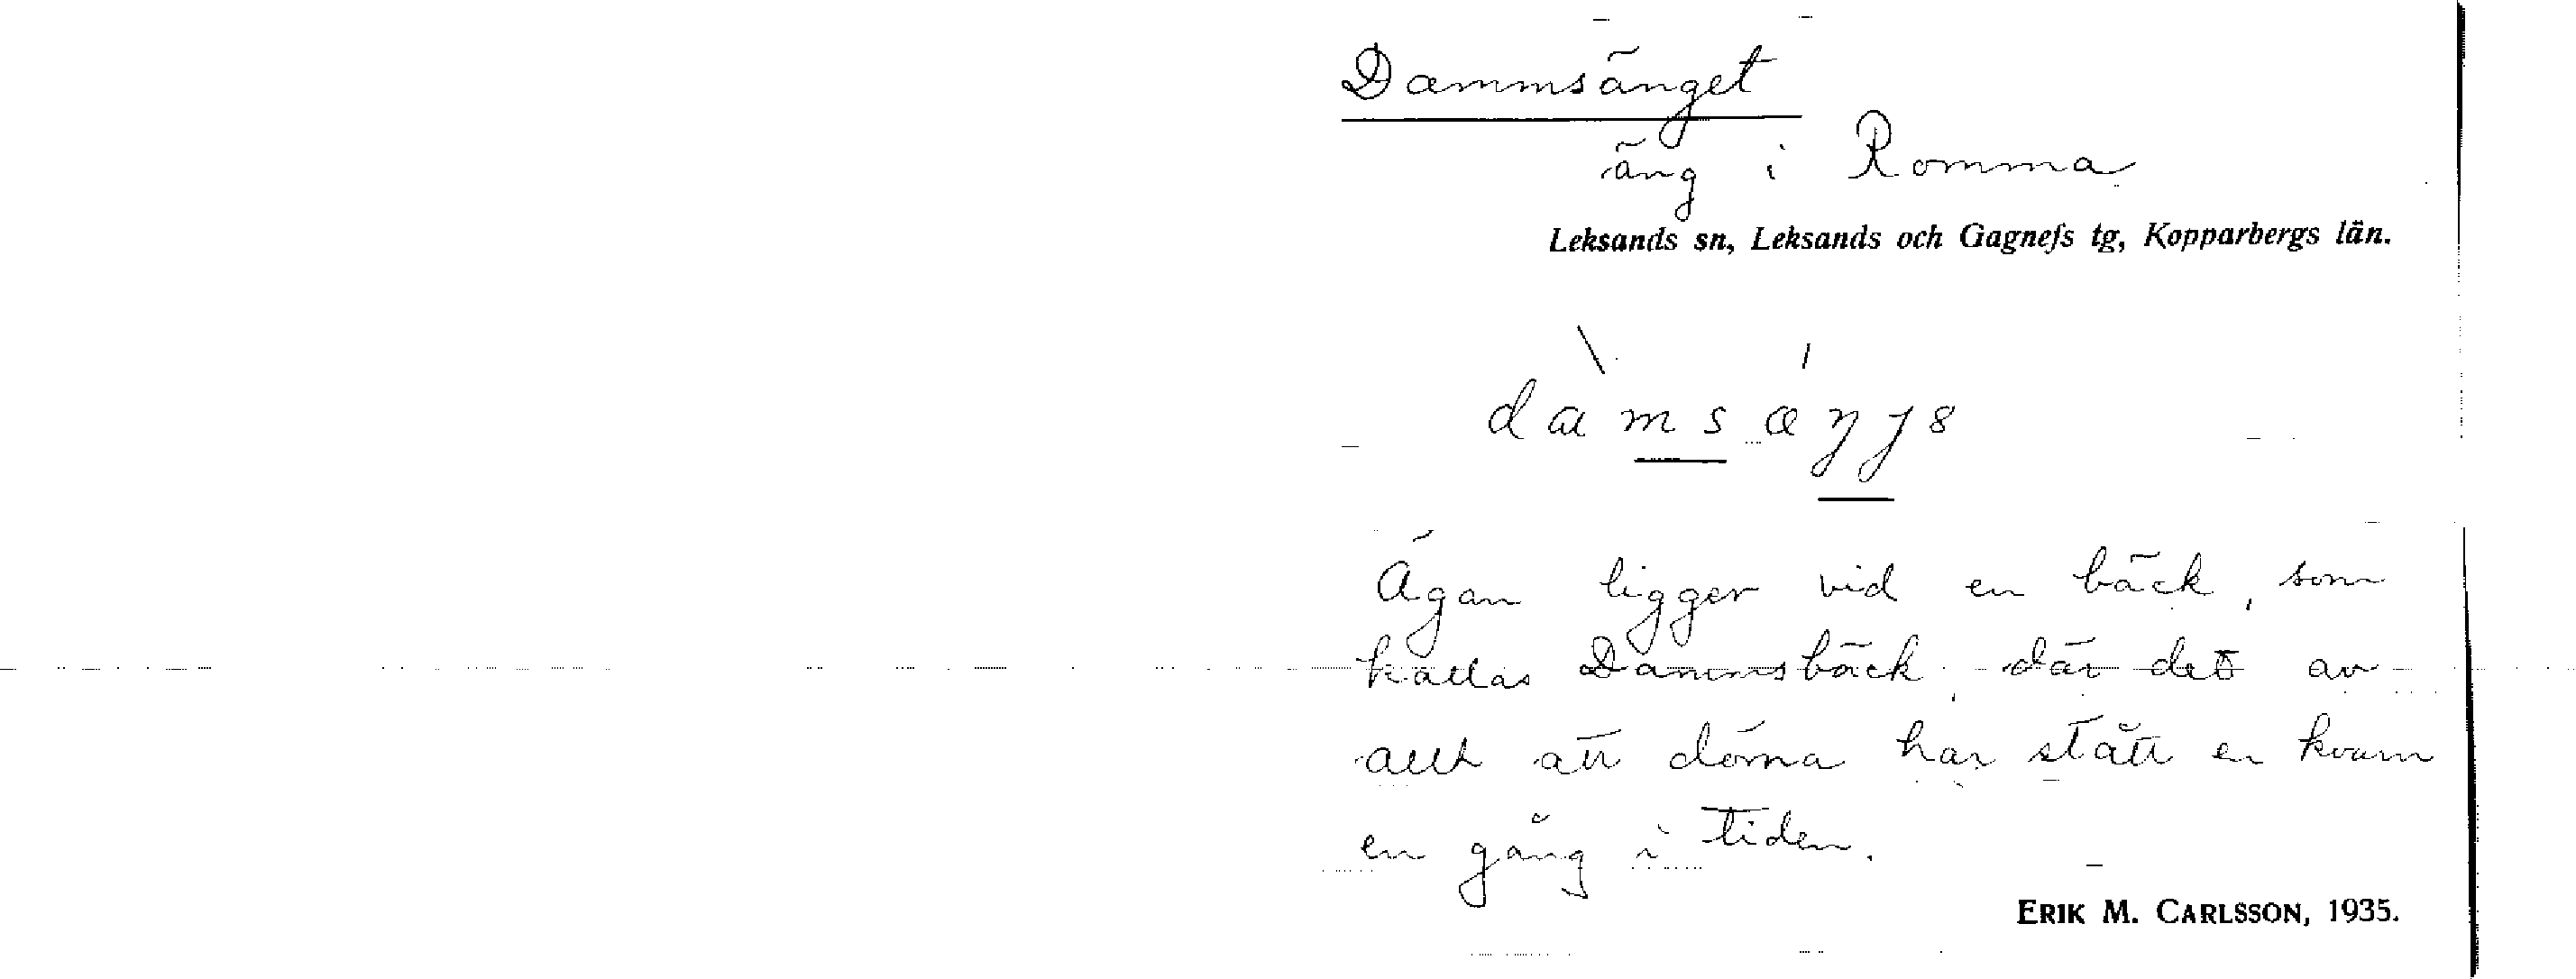 Dammsänget
äng i Romma
Leksands sn, Leksands och Gagnefs tg, Kopparbergs län.
Ägan ligger vid en bäck, som
kallas Dammsbäck, där det av
allt att döma har stått en kvarn
en gång i tiden.
ERIK M. CARLSSON, 1935.